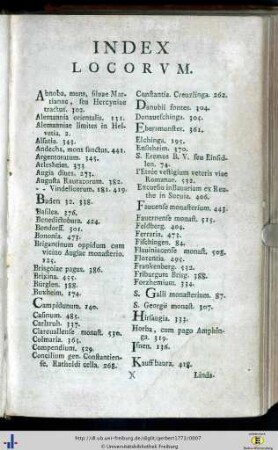 INDEX
LOCORVM.
Abnoba, mons, silvae Mar-
tianae, seu Hercyniae
tractus. 302.
Alemannia orientalis. 131.
Alemanniae limites in Hel-
vetia. 2.
Alsatia. 343.
Andechs, mons sanctus. 441.
Argentoratum. 345.
Arlesheim. 373.
Augia dives. 273.
Augusta Rauracorum. 382.
-- Vindelicorum. 181. 419.
Baden 32. 338.
Basilea. 376.
Benedictobura. 424.
Bendorff. 301.
Bononia. 473.
Brigantinum oppidum cum
vicino Augiae monasterio.
125.
Brisgoiae pagus. 386.
Brixina. 455.
Bürglen. 388.
Buxheim. 174.
Campidunum. 140.
Casinum. 485.
Carlsruh. 337.
Clarevallense monast. 530.
Colmaria. 365.
Compendium. 529.
Concilium gen. Constantien-
se, Ratholdi cella. 268.
Constantia. Creuzlinga. 262.
Danubii fontes. 304.
Donaueschinga. 305.
Ebersmunster. 362.
Elchinga. 195.
Ensisheim. 370.
S. Eremus B. V. seu Einsid-
len. 74.
l'Etrée vestigium veteris viae
Romanae. 532.
Excursio instauratus ex Rau-
the in Suevia. 406.
Faucense monasterium. 443.
Favernense monast. 515.
Feldberg. 404.
Ferraria. 471.
Fischingen. 84.
Flaviniacense monast. 508.
Florentia. 495.
Frankenberg. 552.
Friburgum Brisg. 388.
Forzhemium. 334.
S. Galli monasterium. 87.
S. Georgii monast. 307.
Hirsaugia. 333.
Horba, cum pago Amphin-
go. 319.
Isnen. 136.
Kauffbaura. 418.
X
Linda-
http://dl.ub.uni-freiburg.de/diglit/gerbert1773/0607
© Universitätsbibliothek Freiburg